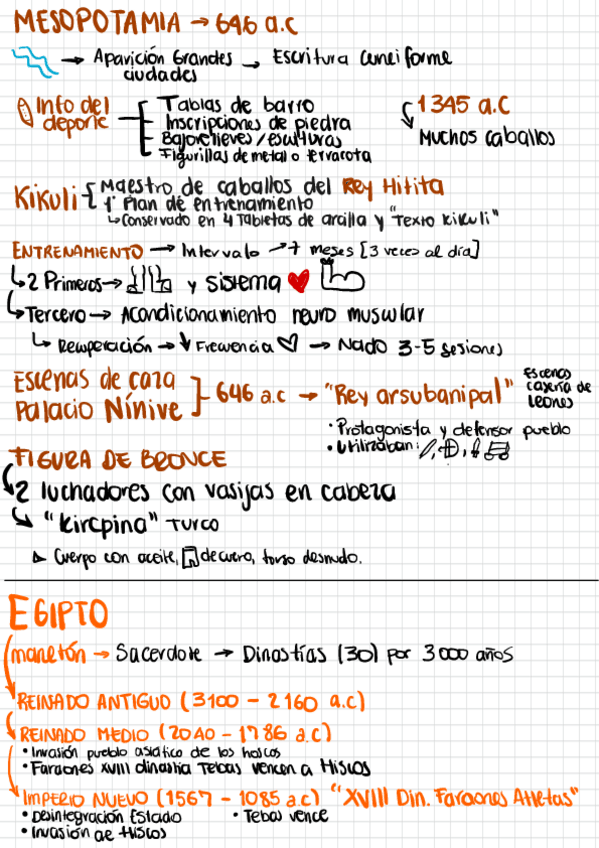 MESOPOTAMIA → 646 a.c
→ Aparición Grandes ciudades → Escritura cuneiforme
Info del deporte
Tablas de barro
Inscripciones de piedra
Bajorelieves/esculturas
Figurillas de metal o terracota
1345 a.C
Muchos caballos
Kikuli
Maestro de caballos del Rey Hitita
1° Plan de entrenamiento
↳ Conservado en 4 Tabletas de arcilla y "Texto Kikuli"
ENTRENAMIENTO → Intervalo → 7 meses [3 veces al día]
↳ 2 Primeros → y sistema
↳ Tercero → Acondicionamiento neuro muscular
↳ Recuperación → ↓ Frecuencia → Nado 3-5 sesiones
Escenas de caza
Palacio Nínive
646 a.c → "Rey arsubanipal"
Escenas casería de leones
• Protagonista y defensor pueblo
• Utilizaban:
FIGURA DE BRONCE
↳ 2 luchadores con vasijas en cabeza
↳ "Kircpina" TURCO
▸ Cuerpo con aceite, de cuero, torso desnudo.
EGIPTO
manetón → Sacerdote → Dinastías (30) por 3000 años
REINADO ANTIGUO (3100 - 2160 a.c)
REINADO MEDIO (2040 - 1786 a.c)
• Invasión pueblo asiático de los hoscos
• Faraones XVIII dinastía Tebas vencen a Hiscos
IMPERIO NUEVO (1567 - 1085 a.c) "XVIII Din. Faraones Atletas"
• Desintegración Estado
• Tebas vence
• Invasión de Hiscos